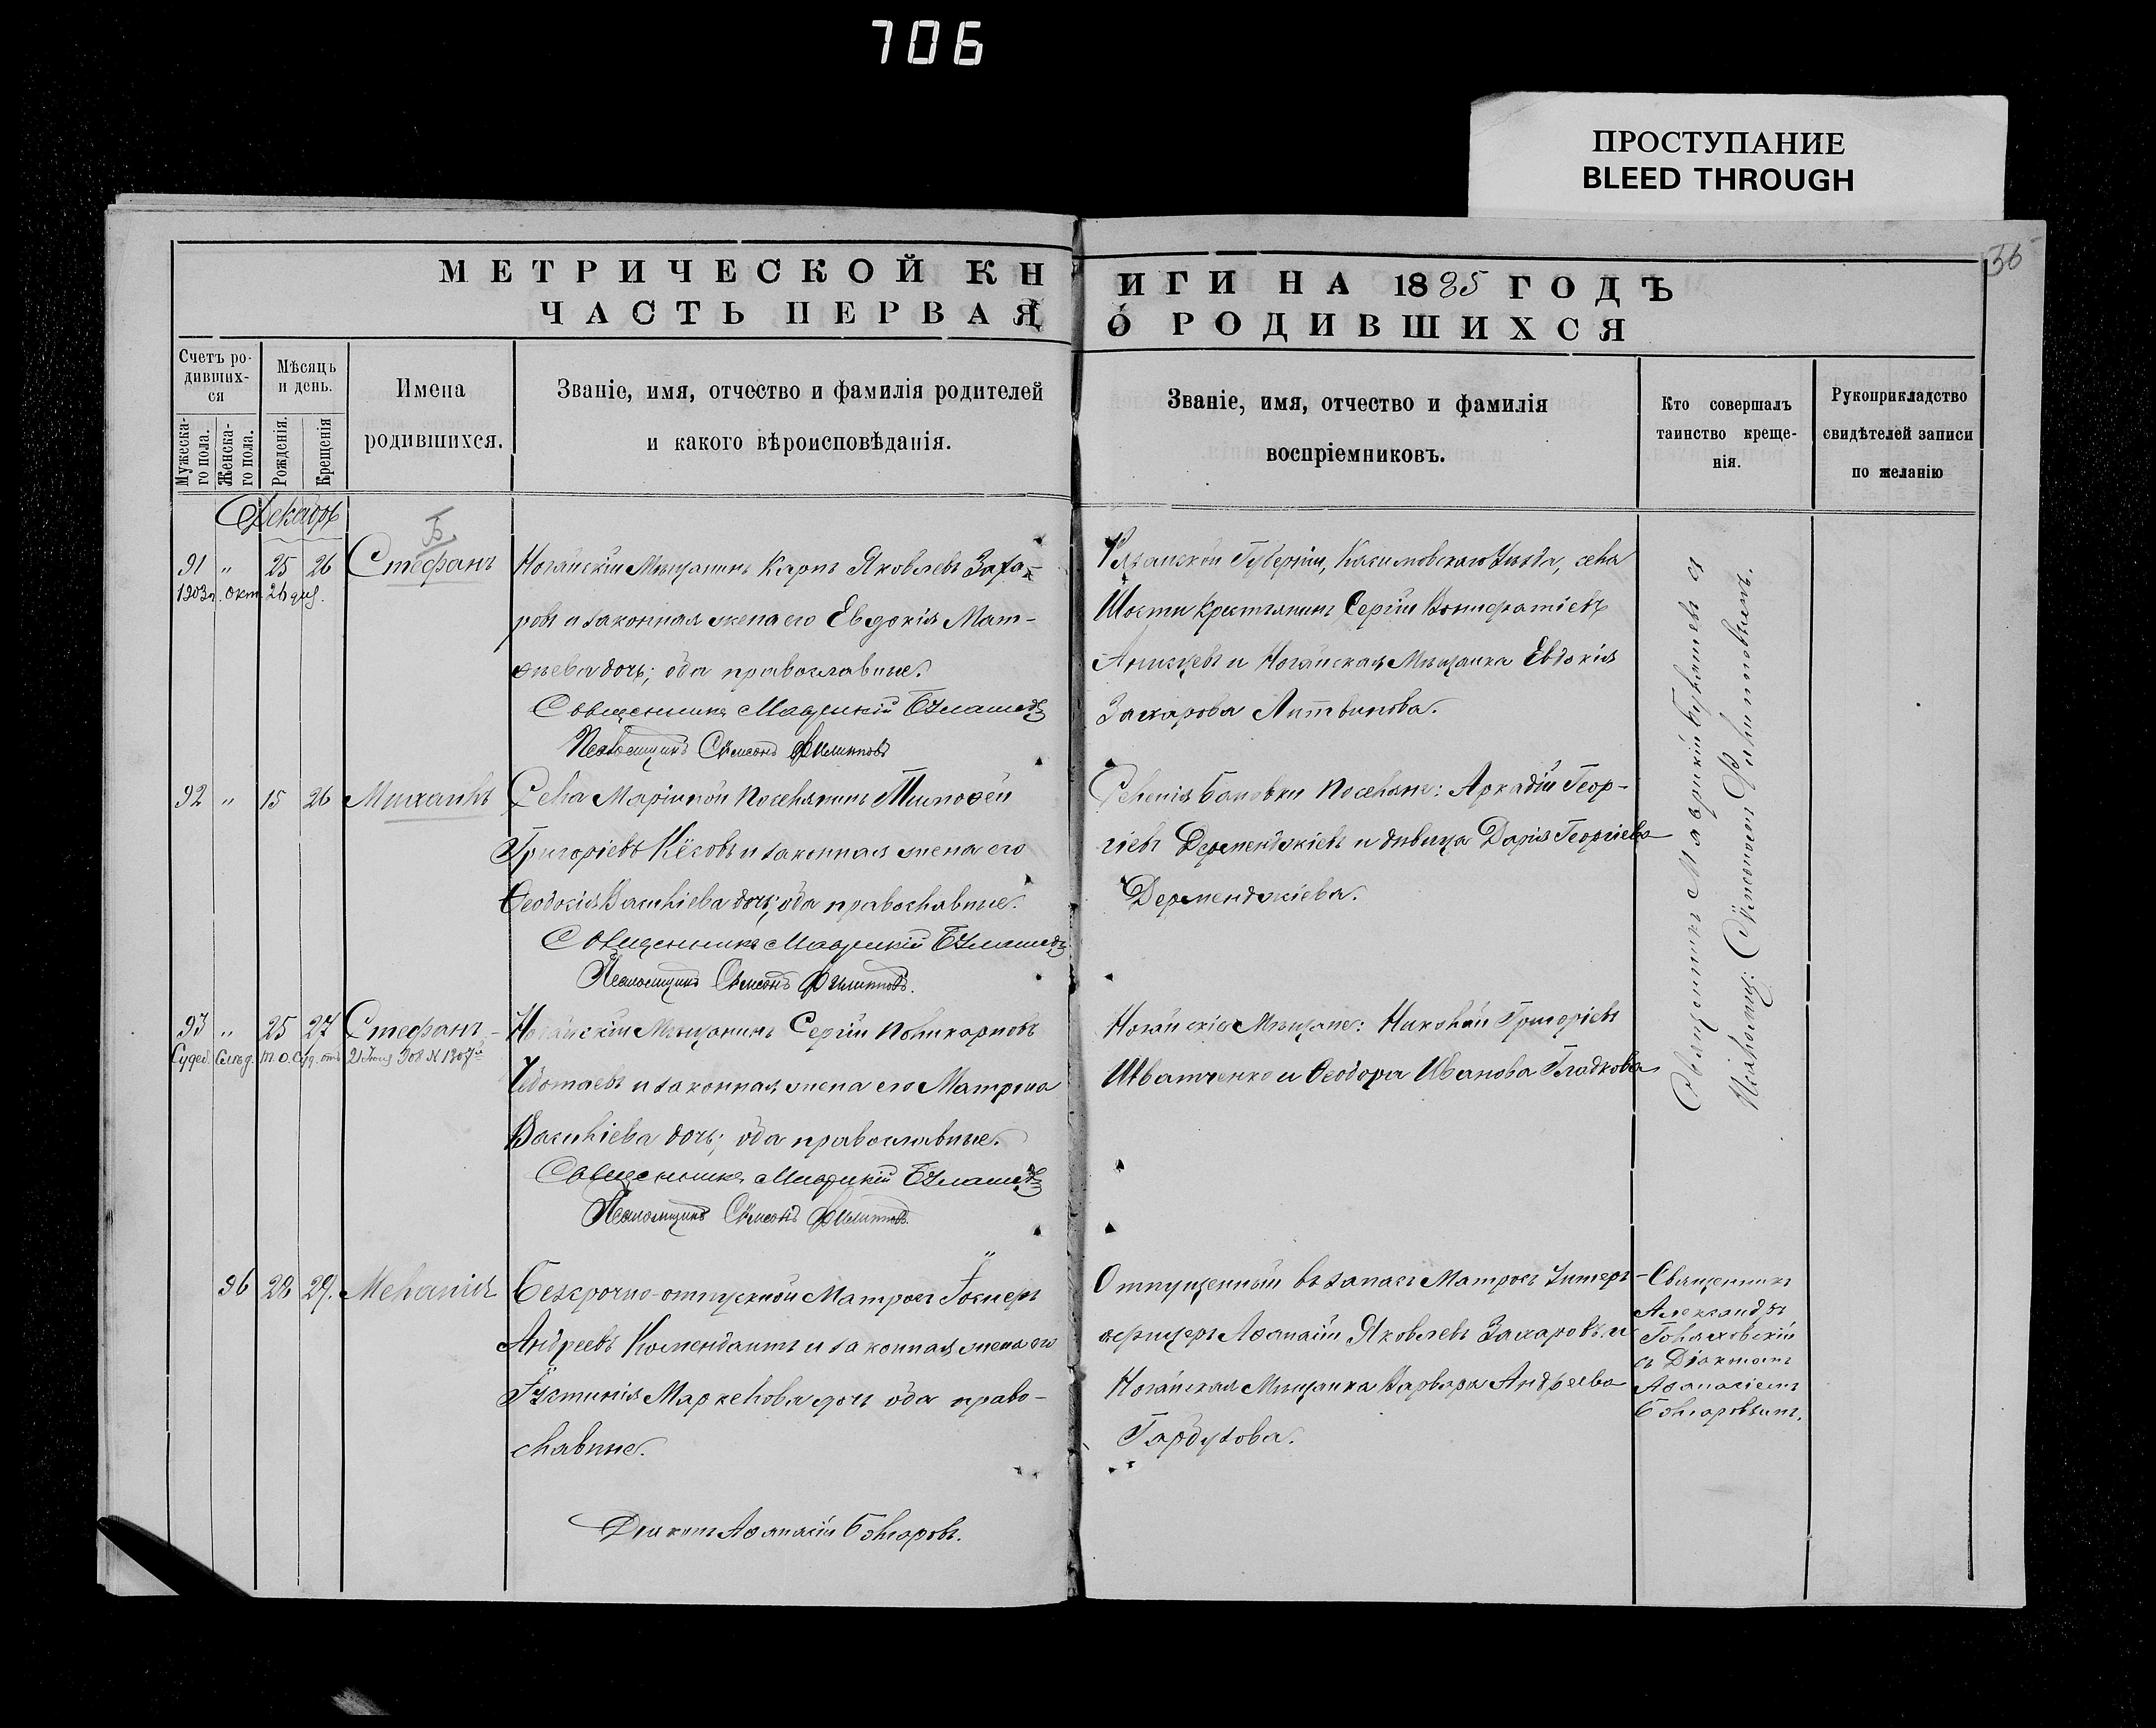 706
ПРОСТУПАНИЕ
BLEED THROUGH
36
МЕТРИЧЕСКОЙ КНИГИ НА 1885 ГОДЪ
ЧАСТЬ ПЕРВАЯ О РОДИВШИХСЯ
Счетъ родивших-
ся
Мужеска-
го пола.
Женска-
го пола.
Мѣсяцъ
и день.
Рожденія.
Крещенія
Имена
родившихся.
Званіе, имя, отчество и фамилія родителей
и какого вѣроисповѣданія.
Званіе, имя, отчество и фамилія
воспріемниковъ.
Кто совершалъ
таинство креще-
нія.
Рукоприкладство
свидѣтелей записи
по желанію
Декабрь
91 " 25 26 Стефанъ
1903 г. окт. 26 дня.
Ногайскій Мѣщанинъ Карпъ Яковлевъ Заха-
ровъ и законная жена его Евдокія Мат-
ѳѣева дочь; оба православные.
Священникъ Маврикій
Псаломщикъ Сѵмеонъ Филипповъ
Рязанской Губерніи, Касимовскаго Уѣзда, села
Шости крестьянинъ Сергій Вонифатіевъ
и Ногайская Мѣщанка Евдокія
Захарова Литвинова.
92 " 15 26 Михаилъ
Села Маріиной поселянинъ Тимоѳей
Григоріевъ Кёсовъ и законная жена его
Ѳеодосія Василіева дочь; оба православные.
Священникъ Маврикій
Псаломщикъ Сѵмеонъ Филипповъ.
Селенія Бановки поселяне: Аркадій Геор-
гіевъ Дерменджіевъ и дѣвица Дарія Георгіева
Дерменджіева.
93 " 25 27 Стефанъ
21 Іюня 908 № 1307
Ногайскій Мѣщанинъ Сергій Поликарповъ
и законная жена его Матрона
Василіева дочь; оба православные.
Священникъ Маврикій
Псаломщикъ Сѵмеонъ Филипповъ.
Ногайскіе Мѣщане: Николай Григоріевъ
Ивотченко и Ѳеодора Иванова Гладкова
Священникъ Маврикій
Псаломщ: Сѵмеономъ Филипповымъ.
96 28 29. Меланія
Безсрочно-отпускной Матросъ
Андреевъ Комендантъ и законная жена его
Іустинія Маркелова дочь оба право-
славные.
Діаконъ Аѳанасій Болгаровъ.
Отпущенный въ запасъ Матросъ Унтеръ-
офицеръ Аѳанасій Яковлевъ Захаровъ и
Ногайская Мѣщанка Варвара Андреева
Гардузова.
Священникъ
Александръ
съ Діакономъ
Аѳанасіемъ
Болгаровымъ.